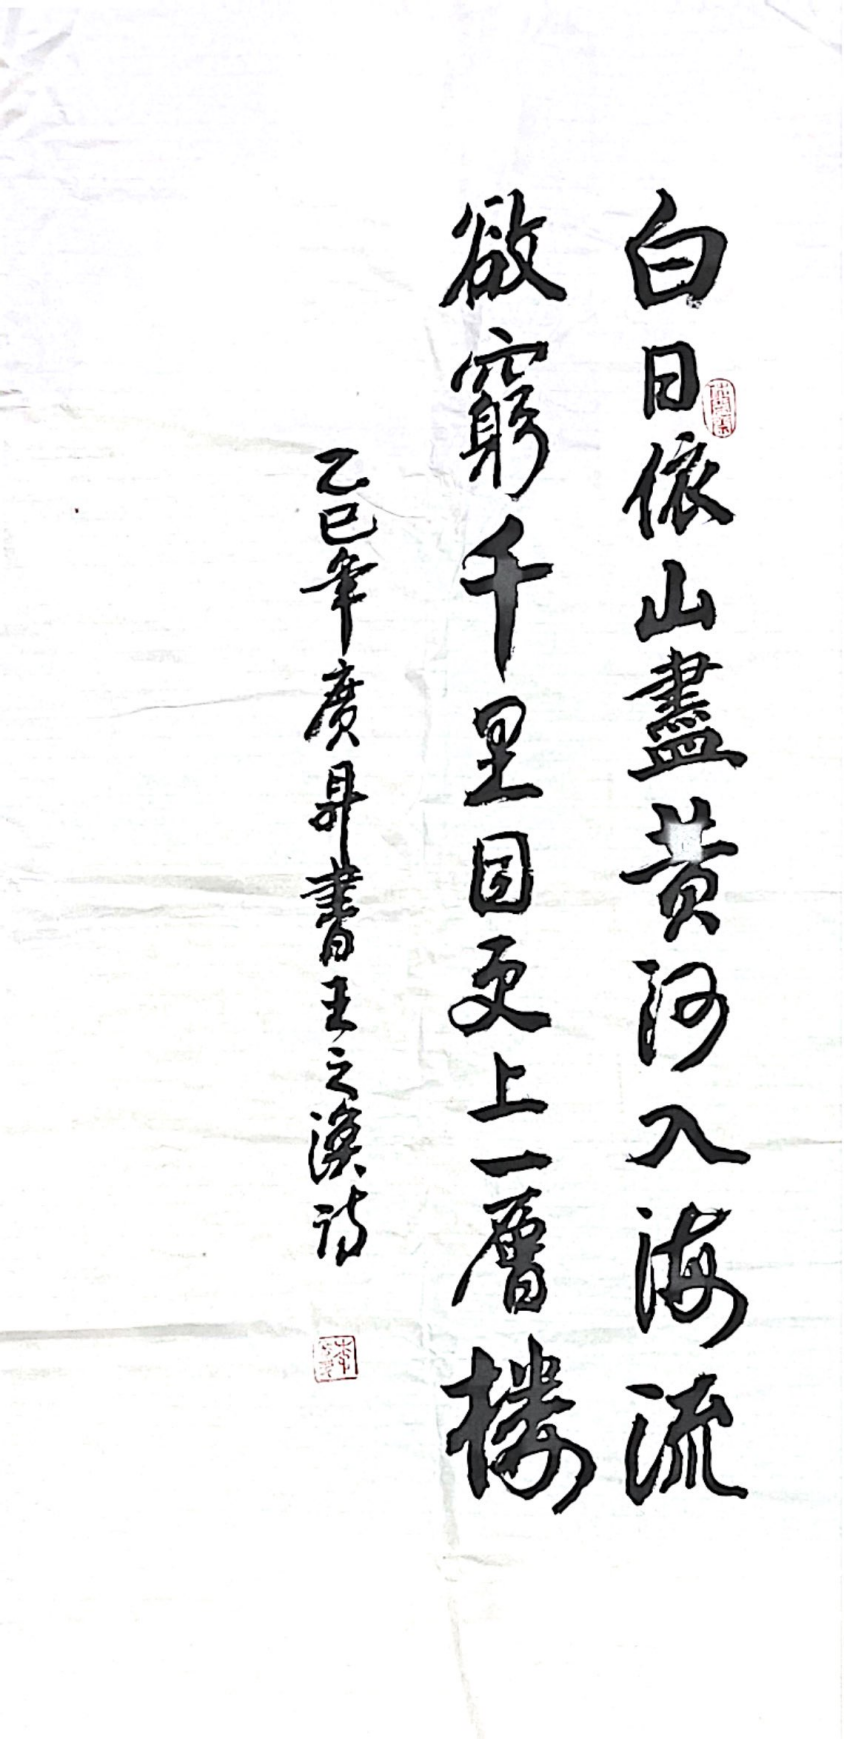 白日依山盡黄河入海流
欲窮千里目更上一層楼
乙巳年廣昇書王之渙詩